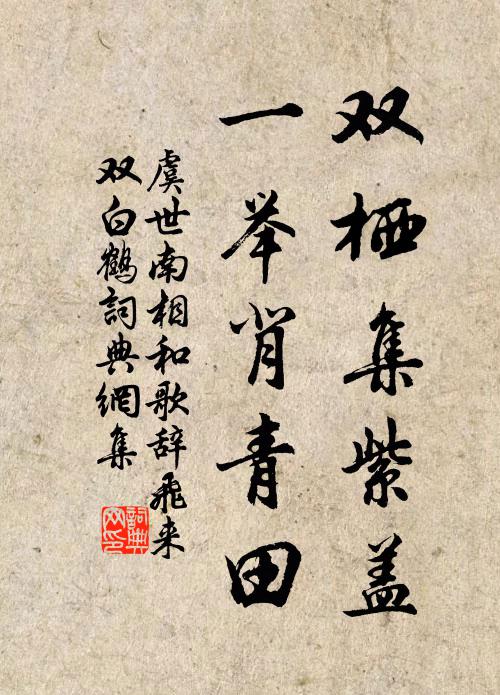 双栖集紫盖
一举背青田
虞世南相和歌辞飛来
双白鶴詞典網集
詞典网印